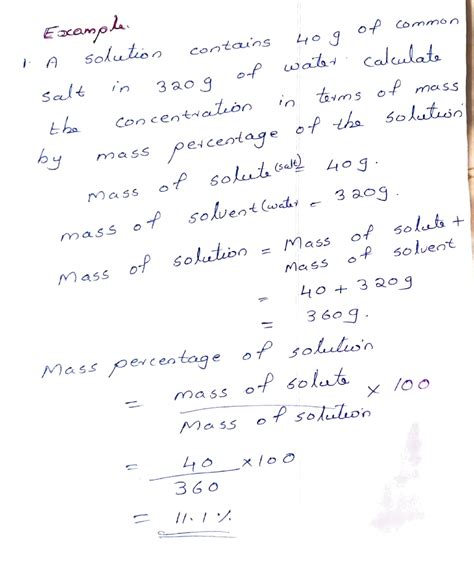 Example.
1. A solution contains 40 g of common
salt in 320 g of water calculate
the concentration in terms of mass
by mass percentage of the solution
Mass of solute (salt) = 40 g.
mass of solvent (water = 320g.
Mass of solution = Mass of solute +
Mass of solvent
= 40 + 320g
= 360g.
Mass percentage of solution
= mass of solute × 100
Mass of solution
= 40 ×100
360
= 11.1 %